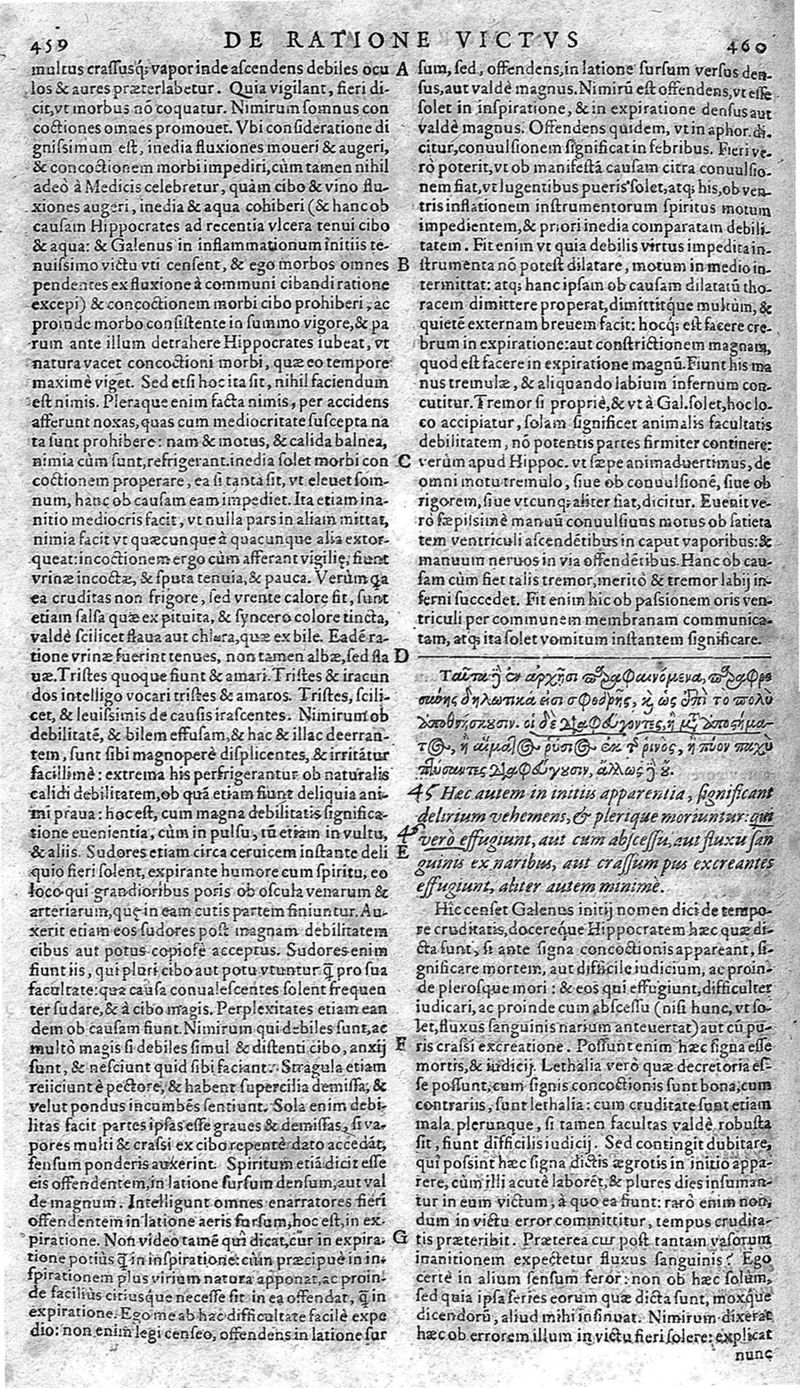 459
DE RATIONE VICTVS
460
multus crassusq; vapor inde ascendens debiles ocu
los & aures præterlabetur. Quia vigilant, fieri di-
cit, vt morbus nõ coquatur. Nimirum somnus con
coctiones omnes promouet. Vbi consideratione di
gnissimum est, inedia fluxiones moueri & augeri,
& concoctionem morbi impediri, cùm tamen nihil
adeò à Medicis celebretur, quàm cibo & vino flu-
xiones augeri, inedia & aqua cohiberi (& hanc ob
causam Hippocrates ad recentia vlcera tenui cibo
& aqua: & Galenus in inflammationum initiis te-
nuissimo victu vti censent, & ego morbos omnes
pendentes ex fluxione à communi cibandi ratione
excepi) & concoctionem morbi cibo prohiberi, ac
proinde morbo consistente in summo vigore, & pa
rum ante illum detrahere Hippocrates iubeat, vt
natura vacet concoctioni morbi, quæ eo tempore
maximè viget. Sed etsi hoc ita sit, nihil faciendum
est nimis. Pleraque enim facta nimis, per accidens
afferunt noxas, quas cum mediocritate suscepta na
ta sunt prohibere: nam & motus, & calida balnea,
nimia cùm sunt, refrigerant. inedia solet morbi con
coctionem properare, ea si tanta sit, vt eleuet som-
num, hanc ob causam eam impediet. Ita etiam ina-
nitio mediocris facit, vt nulla pars in aliam mittat,
nimia facit vt quæcunque à quacunque alia extor-
queat: incoctionem ergo cùm afferant vigilię, fiunt
vrinæ incoctæ, & sputa tenuia, & pauca. Verùm qa
ea cruditas non frigore, sed vrente calore fit, sunt
etiam salsa quæ ex pituita, & syncero colore tincta,
valdè scilicet flaua aut chlara, quæ ex bile. Eadẽ ra-
tione vrinæ fuerint tenues, non tamen albæ, sed fla
uæ. Tristes quoque fiunt & amari. Tristes & iracun
dos intelligo vocari tristes & amaros. Tristes, scili-
cet, & leuissimis de causis irascentes. Nimirum ob
debilitatẽ, & bilem effusam, & hac & illac deerran-
tem, sunt sibi magnoperè displicentes, & irritãtur
facillimè: extrema his perfrigerantur ob naturalis
calidi debilitatem, ob quã etiam fiunt deliquia ani-
mi praua: hoc est, cum magna debilitatis significa-
tione euenientia, cùm in pulsu, tũ etiam in vultu,
& aliis. Sudores etiam circa ceruicem instante deli
quio fieri solent, expirante humore cum spiritu, eo
loco qui grandioribus poris ob oscula venarum &
arteriarum, quę in eam cutis partem finiuntur. Au-
xerit etiam eos sudores post magnam debilitatem
cibus aut potus copiosè acceptus. Sudores enim
fiunt iis, qui pluri cibo aut potu vtuntur q̃ pro sua
facultate: qua causa conualescentes solent frequen
ter sudare, & à cibo magis. Perplexitates etiam ean
dem ob causam fiunt. Nimirum qui debiles sunt, ac
multò magis si debiles simul & distenti cibo, anxij
sunt, & nesciunt quid sibi faciant. Stragula etiam
reiiciunt è pectore, & habent supercilia demissa, &
velut pondus incumbẽs sentiunt. Sola enim debi-
litas facit partes ipsas esse graues & demissas, si va-
pores multi & crassi ex cibo repentè dato accedãt,
sensum ponderis auxerint. Spiritum etiã dicit esse
eis offendentem, in latione sursum densum, aut val
de magnum. Intelligunt omnes enarratores fieri
offendentem in latione aeris sursum, hoc est, in ex-
piratione. Non video tamẽ quî dicat, cur in expira-
tione potiùs q̃ in inspiratione: cùm præcipuè in in-
spirationem plus virium natura apponat, ac proin-
de facilius citiusque necesse sit in ea offendat, q̃ in
expiratione. Ego me ab hac difficultate facilè expe
dio: non enim legi censeo, offendens in latione sur
A
B
C
D
E
F
G
sum, sed, offendens, in latione sursum versus den-
sus, aut valdè magnus. Nimirũ est offendens, vt esse
solet in inspiratione, & in expiratione densus aut
valdè magnus. Offendens quidem, vt in aphor. di-
citur, conuulsionem significat in febribus. Fieri ve-
rò poterit, vt ob manifestã causam citra conuulsio-
nem fiat, vt lugentibus pueris solet, atq; his, ob ven-
tris inflationem instrumentorum spiritus motum
impedientem, & priori inedia comparatam debili-
tatem. Fit enim vt quia debilis virtus impedita in-
strumenta nõ potest dilatare, motum in medio in-
termittat: atq; hanc ipsam ob causam dilatatũ tho-
racem dimittere properat, dimittitque multùm, &
quietẽ externam breuem facit: hocq; est facere cre-
brum in expiratione: aut constrictionem magnam,
quod est facere in expiratione magnũ. Fiunt his ma
nus tremulæ, & aliquando labium infernum con-
cutitur. Tremor si propriè, & vt à Gal. solet, hoc lo-
co accipiatur, solam significet animalis facultatis
debilitatem, nõ potentis partes firmiter continere:
verùm apud Hippoc. vt sæpe animaduertimus, de
omni motu tremulo, siue ob conuulsionẽ, siue ob
rigorem, siue vtcunq; aliter fiat, dicitur. Euenit ve-
rò sæpissimè manuũ conuulsiuus motus ob satieta
tem ventriculi ascendẽtibus in caput vaporibus: &
manuum neruos in via offendẽtibus. Hanc ob cau-
sam cùm fiet talis tremor, meritò & tremor labij in-
ferni succedet. Fit enim hic ob passionem oris ven-
triculi per communem membranam communica-
tam, atq; ita solet vomitum instantem significare.
Ταῦτα ἢ ἐν ἀρχῆσι παραφαινόμενα, παραφρο
σύνης δηλωτικά εἰσι σφοδρῆς, καὶ ὡς ἐπὶ τὸ πολὺ
ὑποθνήσκουσιν. οἱ δὲ διαφεύγοντες, ἢ μετ' ὑποστήμα-
τος, ἢ αἵματος ῥύσιος ἐκ τ ῥινὸς, ἢ πύον παχὺ
πτύσαντες διαφεύγουσιν, ἄλλως ἢ οὔ.
45 Hæc autem in initiis apparentia, significant
delirium vehemens, & plerique moriuntur: qui
46 verò effugiunt, aut cum abscessu, aut fluxu san
guinis ex naribus, aut crassum pus excreantes
effugiunt, aliter autem minimè.
Hic censet Galenus initij nomen dici de tempo-
re cruditatis, docereque Hippocratem hæc quæ di-
cta sunt, si ante signa concoctionis appareant, si-
gnificare mortem, aut difficile iudicium, ac proin-
de plerosque mori: & eos qui effugiunt, difficulter
iudicari, ac proinde cum abscessu (nisi hunc, vt so-
let, fluxus sanguinis narium anteuertat) aut cũ pu-
ris crassi excreatione. Possunt enim hæc signa esse
mortis, & iudicij. Lethalia verò quæ decretoria es-
se possunt, cum signis concoctionis sunt bona, cum
contrariis, sunt lethalia: cum cruditate sunt etiam
mala plerunque, si tamen facultas valdè robusta
sit, fiunt difficilis iudicij. Sed contingit dubitare,
qui possint hæc signa dictis ægrotis in initio appa-
rere, cùm illi acutè laborẽt, & plures dies insuman-
tur in eum victum, à quo ea fiunt: rarò enim non-
dum in victu error committitur, tempus crudita-
tis præteribit. Præterea cur post tantam vasorum
inanitionem expectetur fluxus sanguinis? Ego
certè in alium sensum feror: non ob hæc solùm,
sed quia ipsa series eorum quæ dicta sunt, moxque
dicendorũ, aliud mihi insinuat. Nimirum dixerat
hæc ob errorem illum in victu fieri solere: explicat
nunc